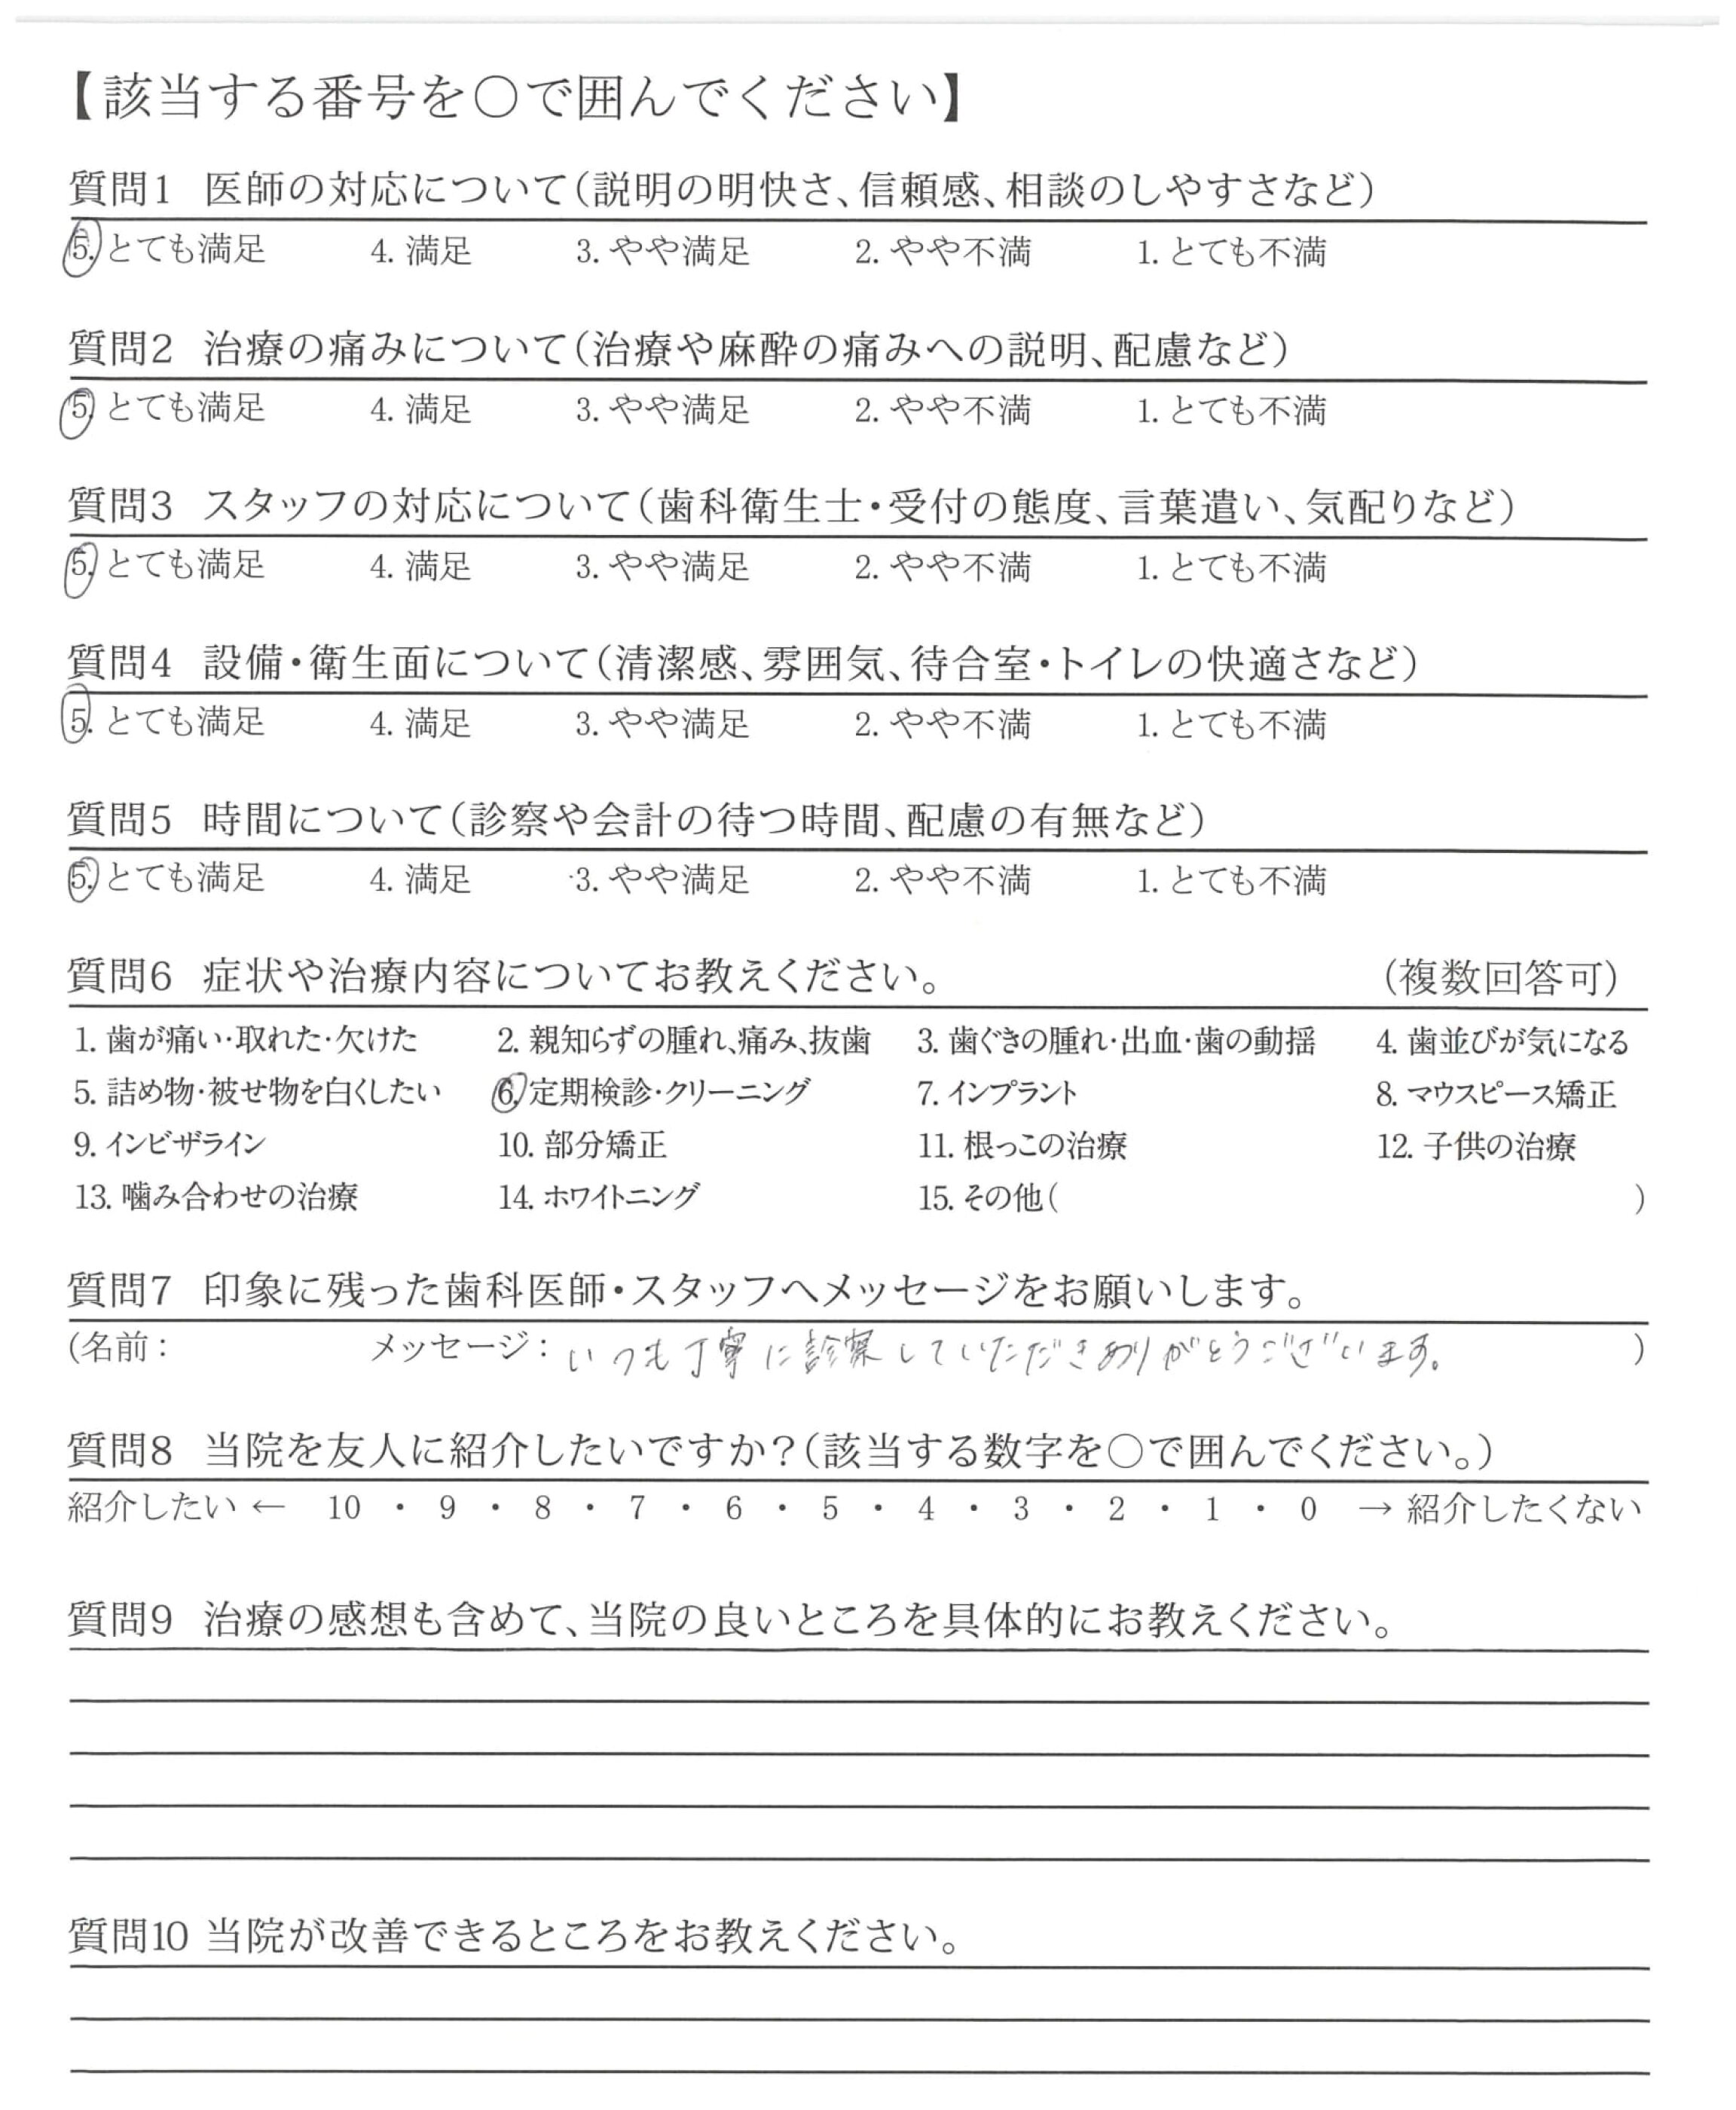 【該当する番号を○で囲んでください】
質問1 医師の対応について(説明の明快さ、信頼感、相談のしやすさなど)
5. とても満足 4. 満足 3. やや満足 2. やや不満 1. とても不満
質問2 治療の痛みについて(治療や麻酔の痛みへの説明、配慮など)
5. とても満足 4. 満足 3. やや満足 2. やや不満 1. とても不満
質問3 スタッフの対応について(歯科衛生士・受付の態度、言葉遣い、気配りなど)
5. とても満足 4. 満足 3. やや満足 2. やや不満 1. とても不満
質問4 設備・衛生面について(清潔感、雰囲気、待合室・トイレの快適さなど)
5. とても満足 4. 満足 3. やや満足 2. やや不満 1. とても不満
質問5 時間について(診察や会計の待つ時間、配慮の有無など)
5. とても満足 4. 満足 3. やや満足 2. やや不満 1. とても不満
質問6 症状や治療内容についてお教えください。 (複数回答可)
1. 歯が痛い・取れた・欠けた 2. 親知らずの腫れ、痛み、抜歯 3. 歯ぐきの腫れ・出血・歯の動揺 4. 歯並びが気になる
5. 詰め物・被せ物を白くしたい 6. 定期検診・クリーニング 7. インプラント 8. マウスピース矯正
9. インビザライン 10. 部分矯正 11. 根っこの治療 12. 子供の治療
13. 噛み合わせの治療 14. ホワイトニング 15. その他( )
質問7 印象に残った歯科医師・スタッフへメッセージをお願いします。
(名前: メッセージ: いつも丁寧に診察していただきありがとうございます。 )
質問8 当院を友人に紹介したいですか?(該当する数字を○で囲んでください。)
紹介したい ← 10 ・ 9 ・ 8 ・ 7 ・ 6 ・ 5 ・ 4 ・ 3 ・ 2 ・ 1 ・ 0 → 紹介したくない
質問9 治療の感想も含めて、当院の良いところを具体的にお教えください。
質問10 当院が改善できるところをお教えください。